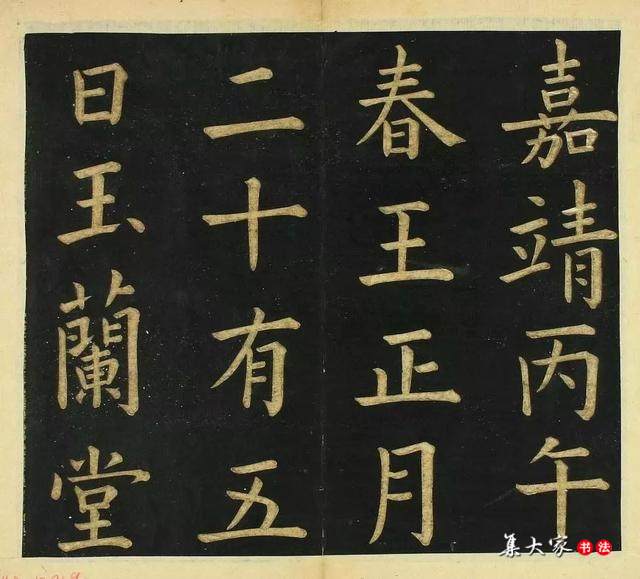 嘉靖丙午
春王正月
二十有五
日玉蘭堂
集大家书法